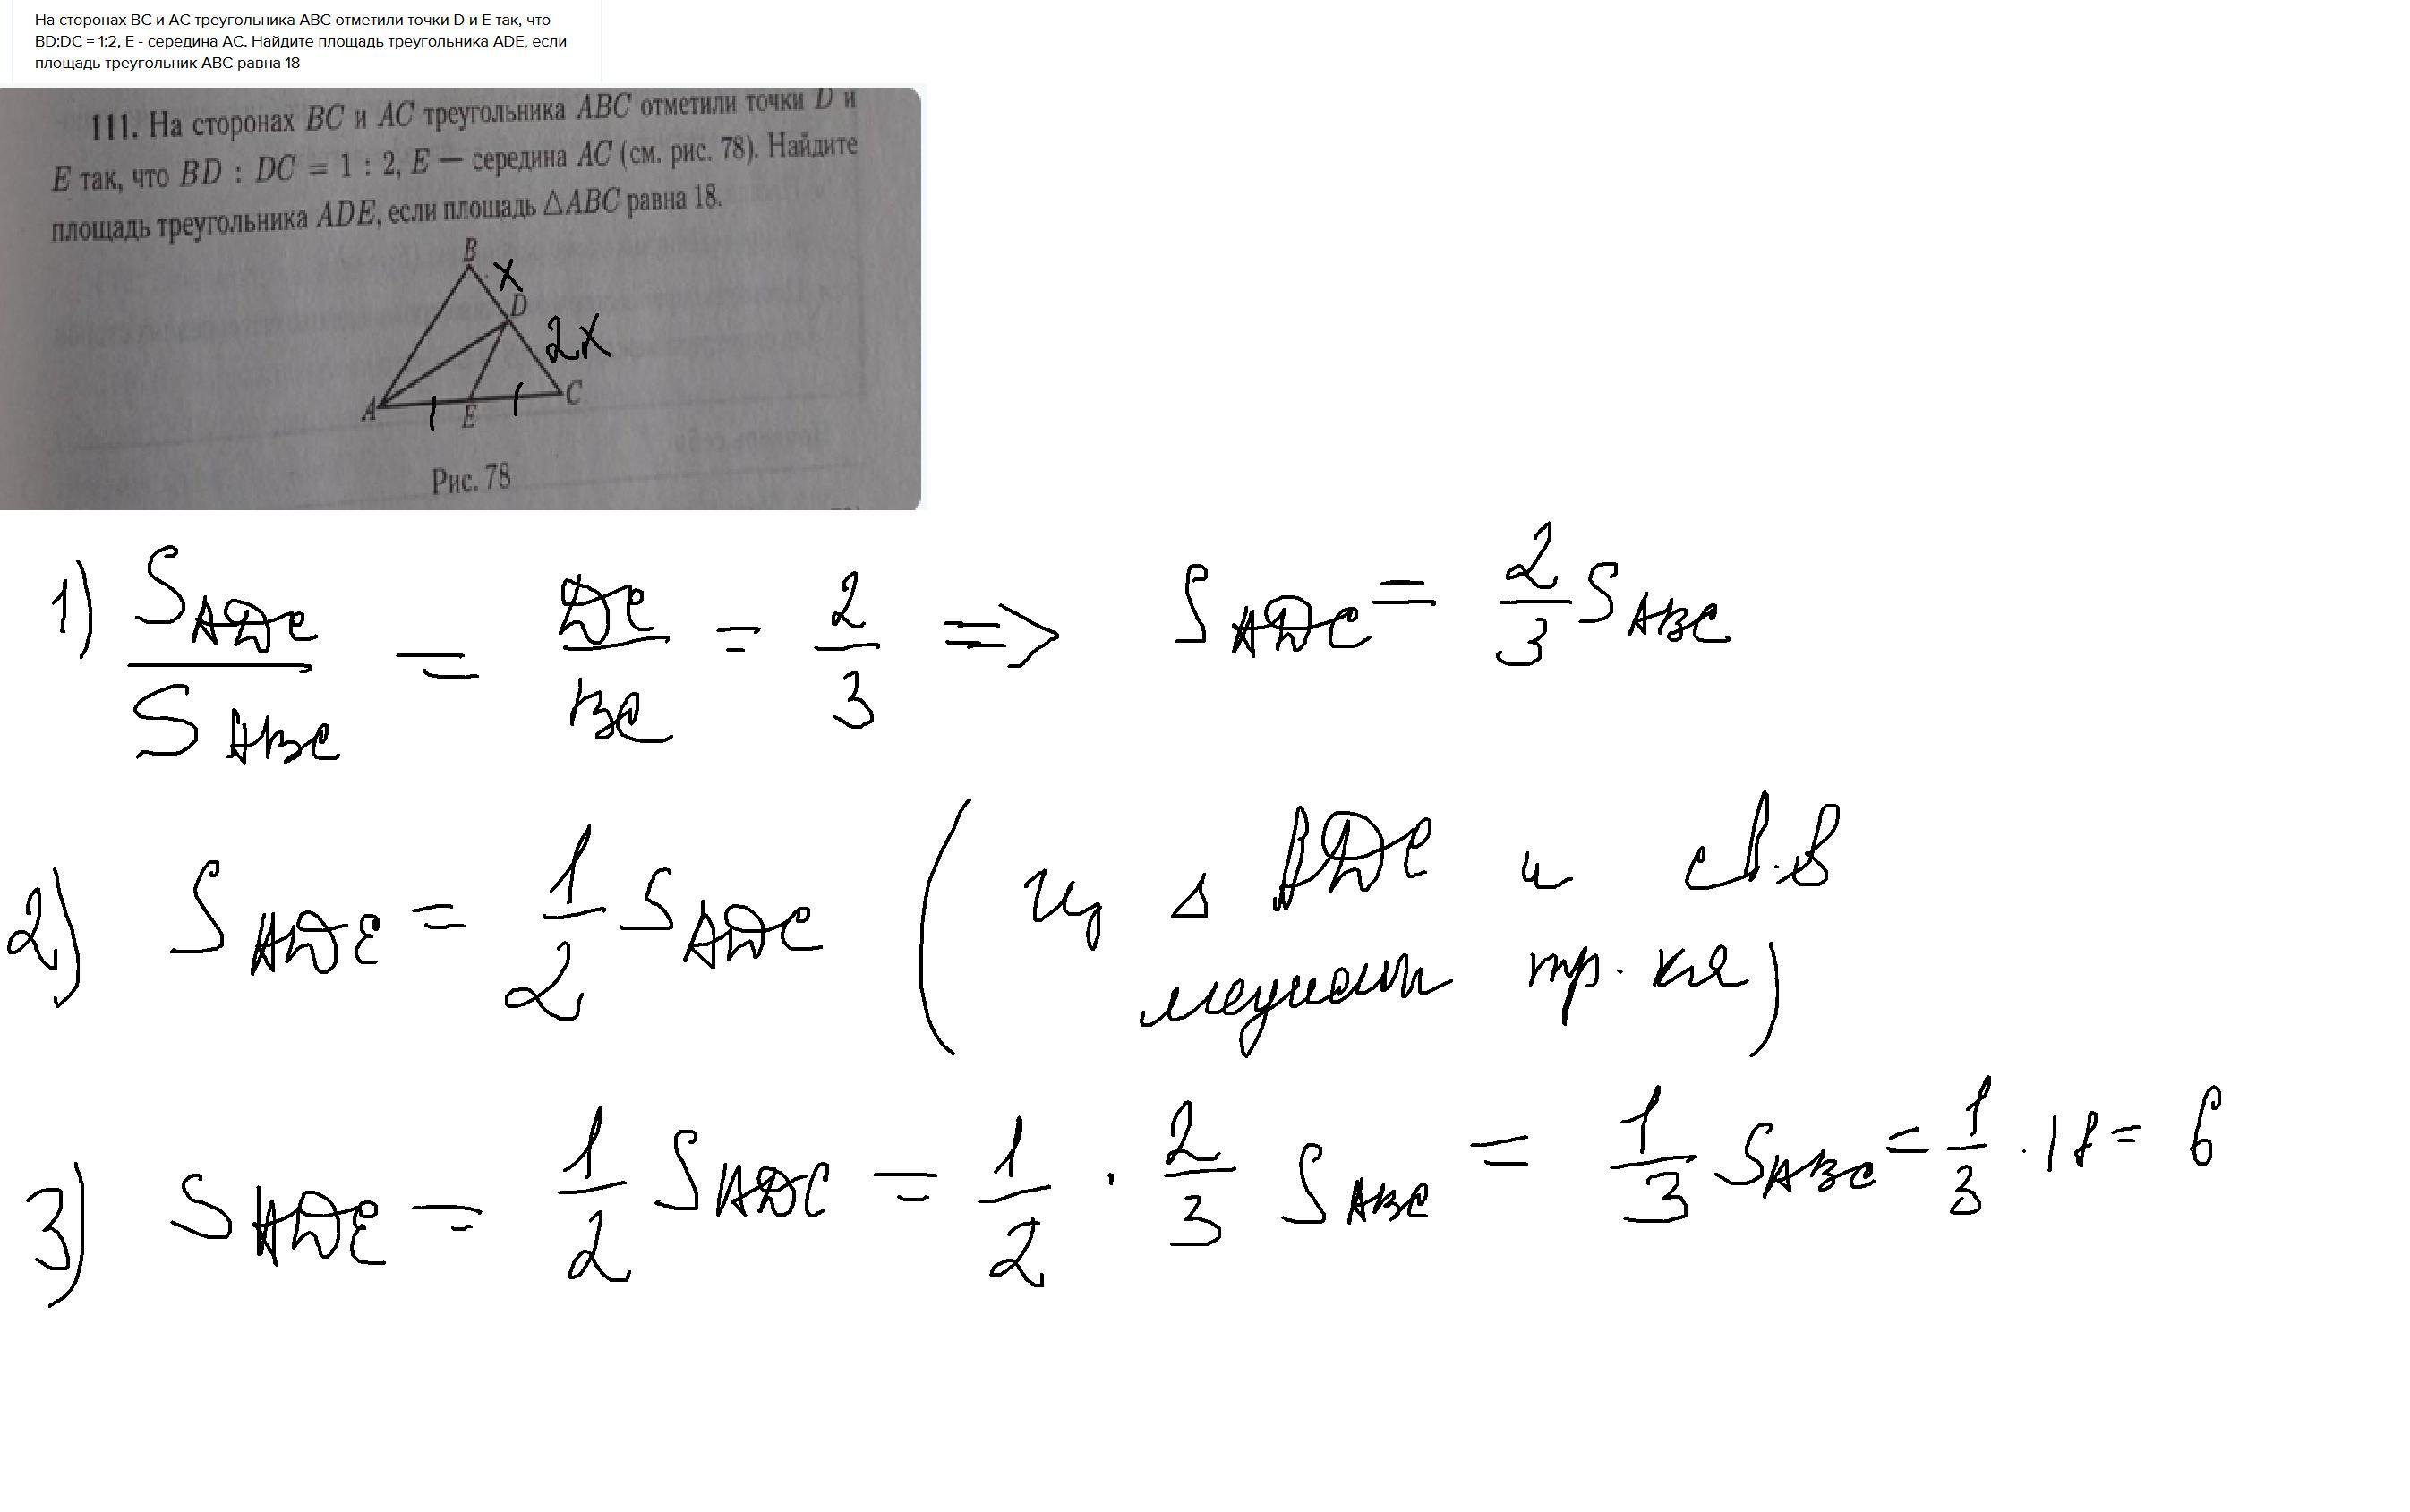 На сторонах BC и AC треугольника ABC отметили точки D и E так, что
BD:DC = 1:2, E - середина AC. Найдите площадь треугольника ADE, если
площадь треугольник ABC равна 18
111. На сторонах BC и AC треугольника ABC отметили точки D и
E так, что BD : DC = 1 : 2, E — середина AC (см. рис. 78). Найдите
площадь треугольника ADE, если площадь △ABC равна 18.
B
x
D
2x
A
E
C
Рис. 78
1) S_ADC / S_ABC = DC / BC = 2/3 => S_ADC = 2/3 S_ABC
2) S_ADE = 1/2 S_ADC (из △ ADC и св.в
медианы тр. ка)
3) S_ADE = 1/2 S_ADC = 1/2 · 2/3 S_ABC = 1/3 S_ABC = 1/3 · 18 = 6